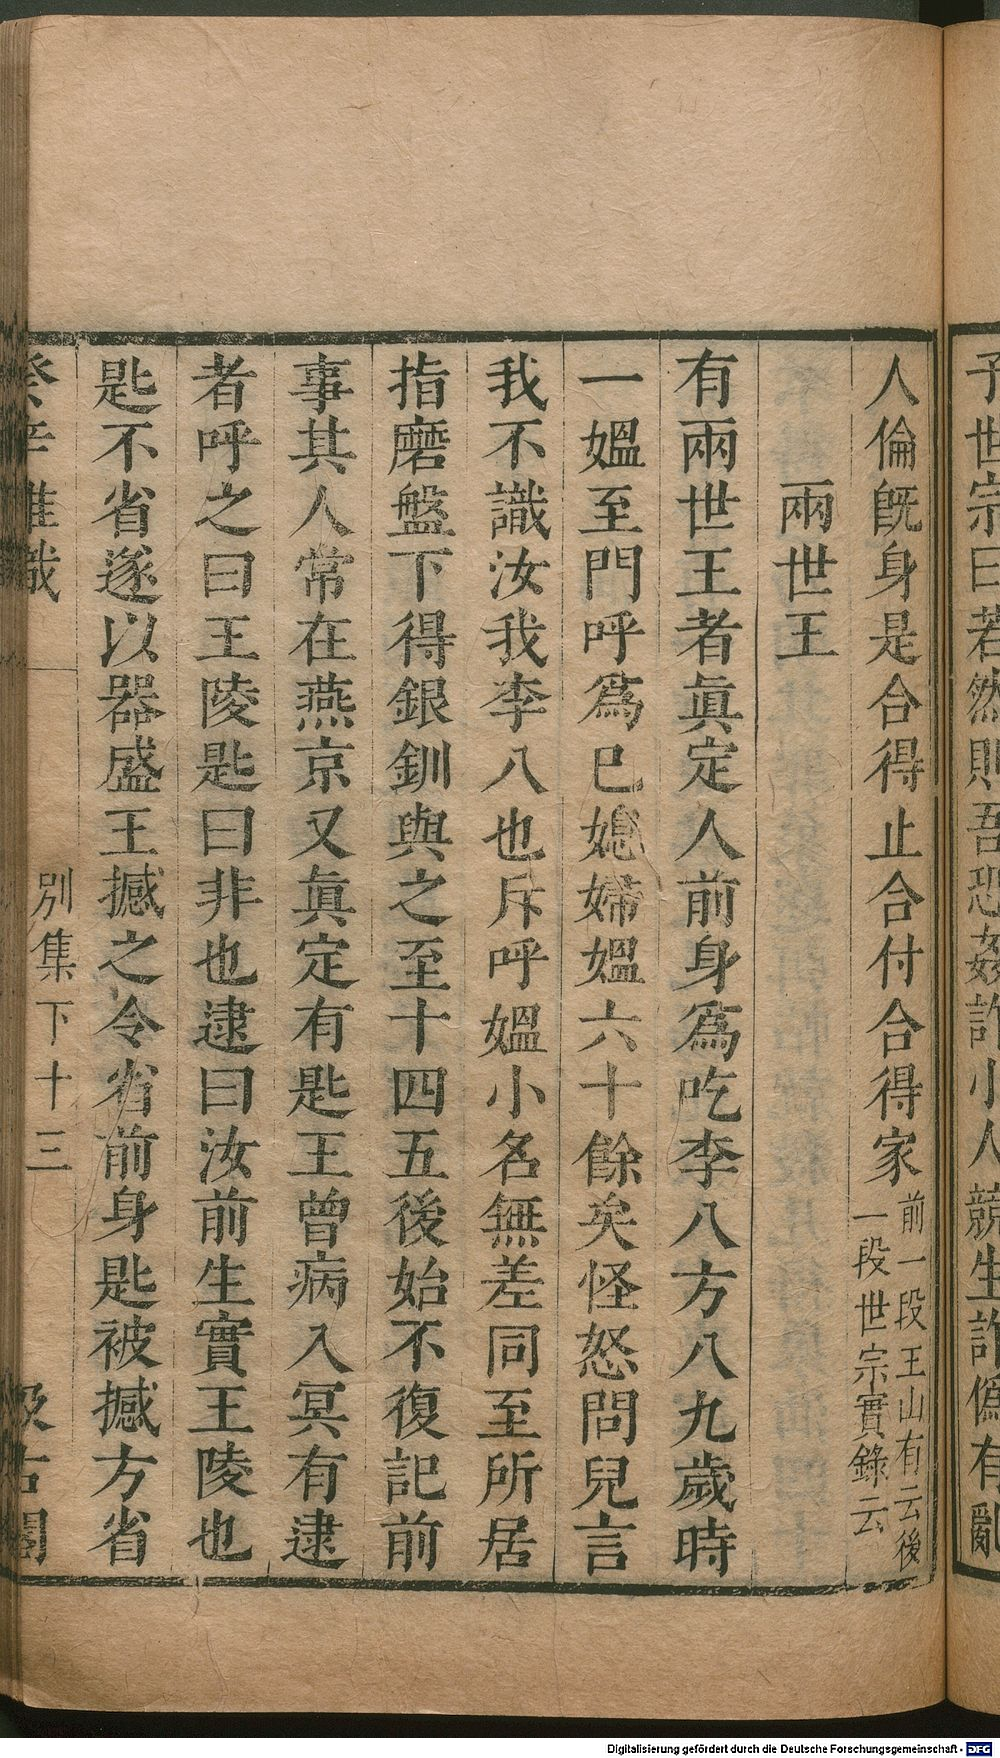 予世宗曰若然則吾恐姦詐小人競生詐僞有亂
人倫旣身是合得止合付合得家前一段王山有云後一段世宗實錄云
兩世王
有兩世王者眞定人前身爲吃李八方八九歲時
一媼至門呼爲已媳婦媼六十餘矣怪怒問兒言
我不識汝我李八也斥呼媼小名無差同至所居
指磨盤下得銀釧與之至十四五後始不復記前
事其人常在燕京又眞定有匙王曾病入冥有逮
者呼之曰王陵匙曰非也逮曰汝前生實王陵也
匙不省遂以器盛王撼之令省前身匙被撼方省
癸辛雜識
別集下十三
汲古閣
Digitalisierung gefördert durch die Deutsche Forschungsgemeinschaft - DFG